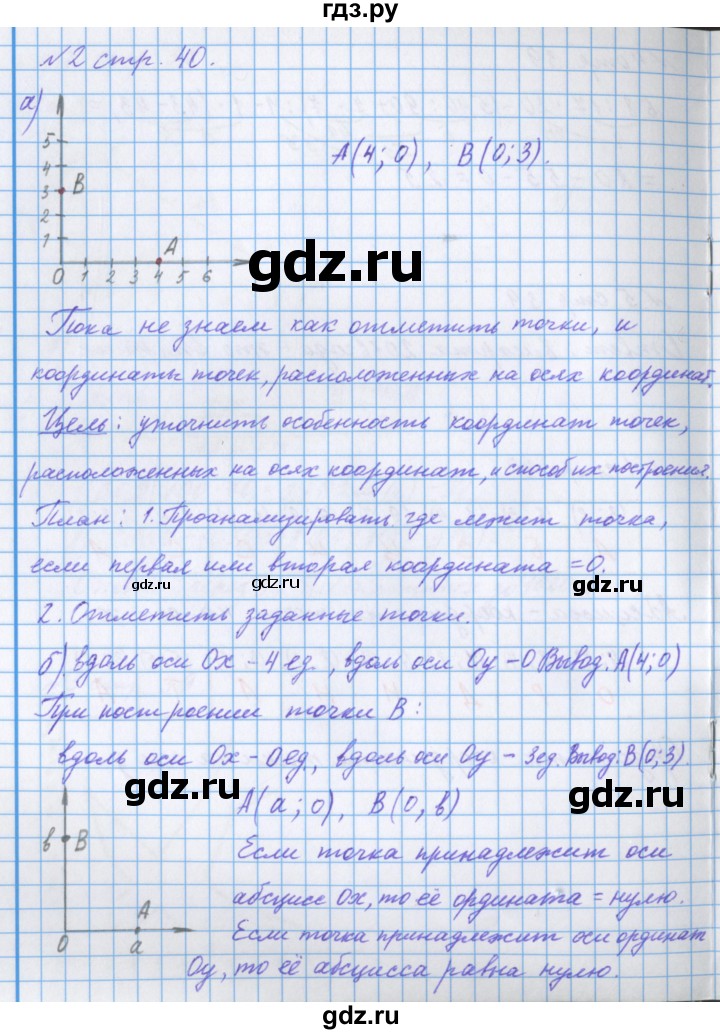 гдз.ру
№2 стр. 40.
а)
А(4; 0), В(0; 3).
5
4
3 В
2
1
А
0 1 2 3 4 5 6
gdz.ru
Пока не знаем как отметить точки, и
координаты точек, расположенных на осях координат.
Цель: уточнить особенность координат точек,
расположенных на осях координат, и способ их построения.
План: 1. Проанализировать где лежит точка,
если первая или вторая координата =0.
gdz.ru gdz.ru gdz.ru
2. Отметить заданные точки.
б) вдоль оси Ох – 4 ед., вдоль оси Оу – 0 Вывод: А(4; 0)
При построении точки В:
вдоль оси Ох – 0 ед, вдоль оси Оу – 3 ед. Вывод: В(0; 3).
gdz.ru gdz.ru
А(а; 0), В(0, в)
в В
А
0 а
Если точка принадлежит оси
абсцисс Ох, то её ордината = нулю.
Если точка принадлежит оси ординат
Оу, то её абсцисса равна нулю.
gdz.ru gdz.ru
gdz.ru